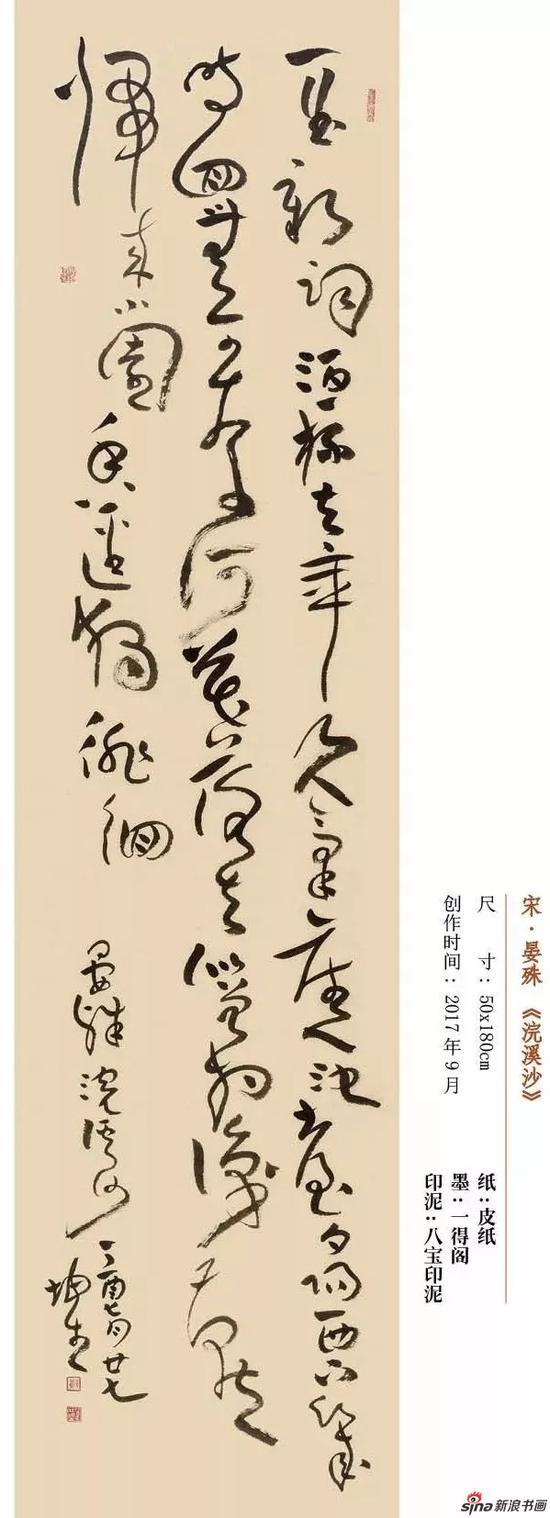 一曲新詞酒一杯去年天氣舊池臺夕陽西下幾
時回無可奈何花落去似曾相識燕
歸來小園香徑獨徘徊
晏殊浣溪沙丁酉七月廿七
宋·晏殊《浣溪沙》
尺 寸：50x180cm
纸：皮纸
墨：一得阁
创作时间：2017年9月
印泥：八宝印泥
sina新浪书画